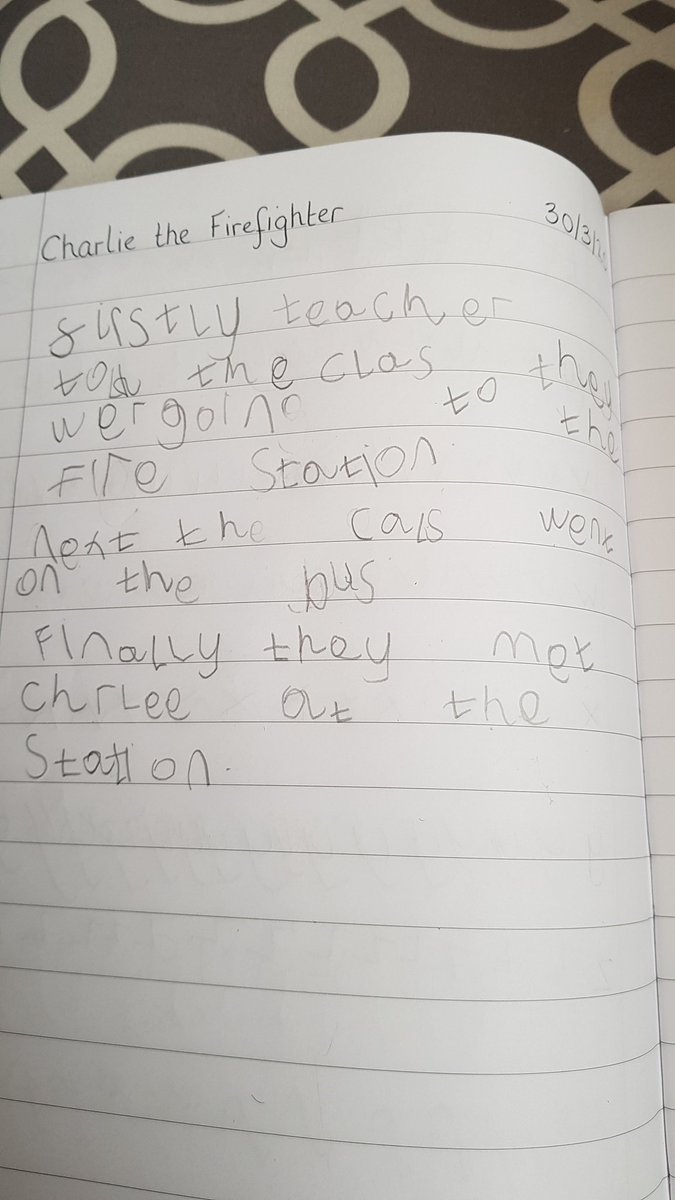 Charlie the Firefighter 30/3/2
firstly teacher
told the clas they
wer going to the
Fire Station
next the cals went
on the bus.
Finally they met
chrlee at the
Station.